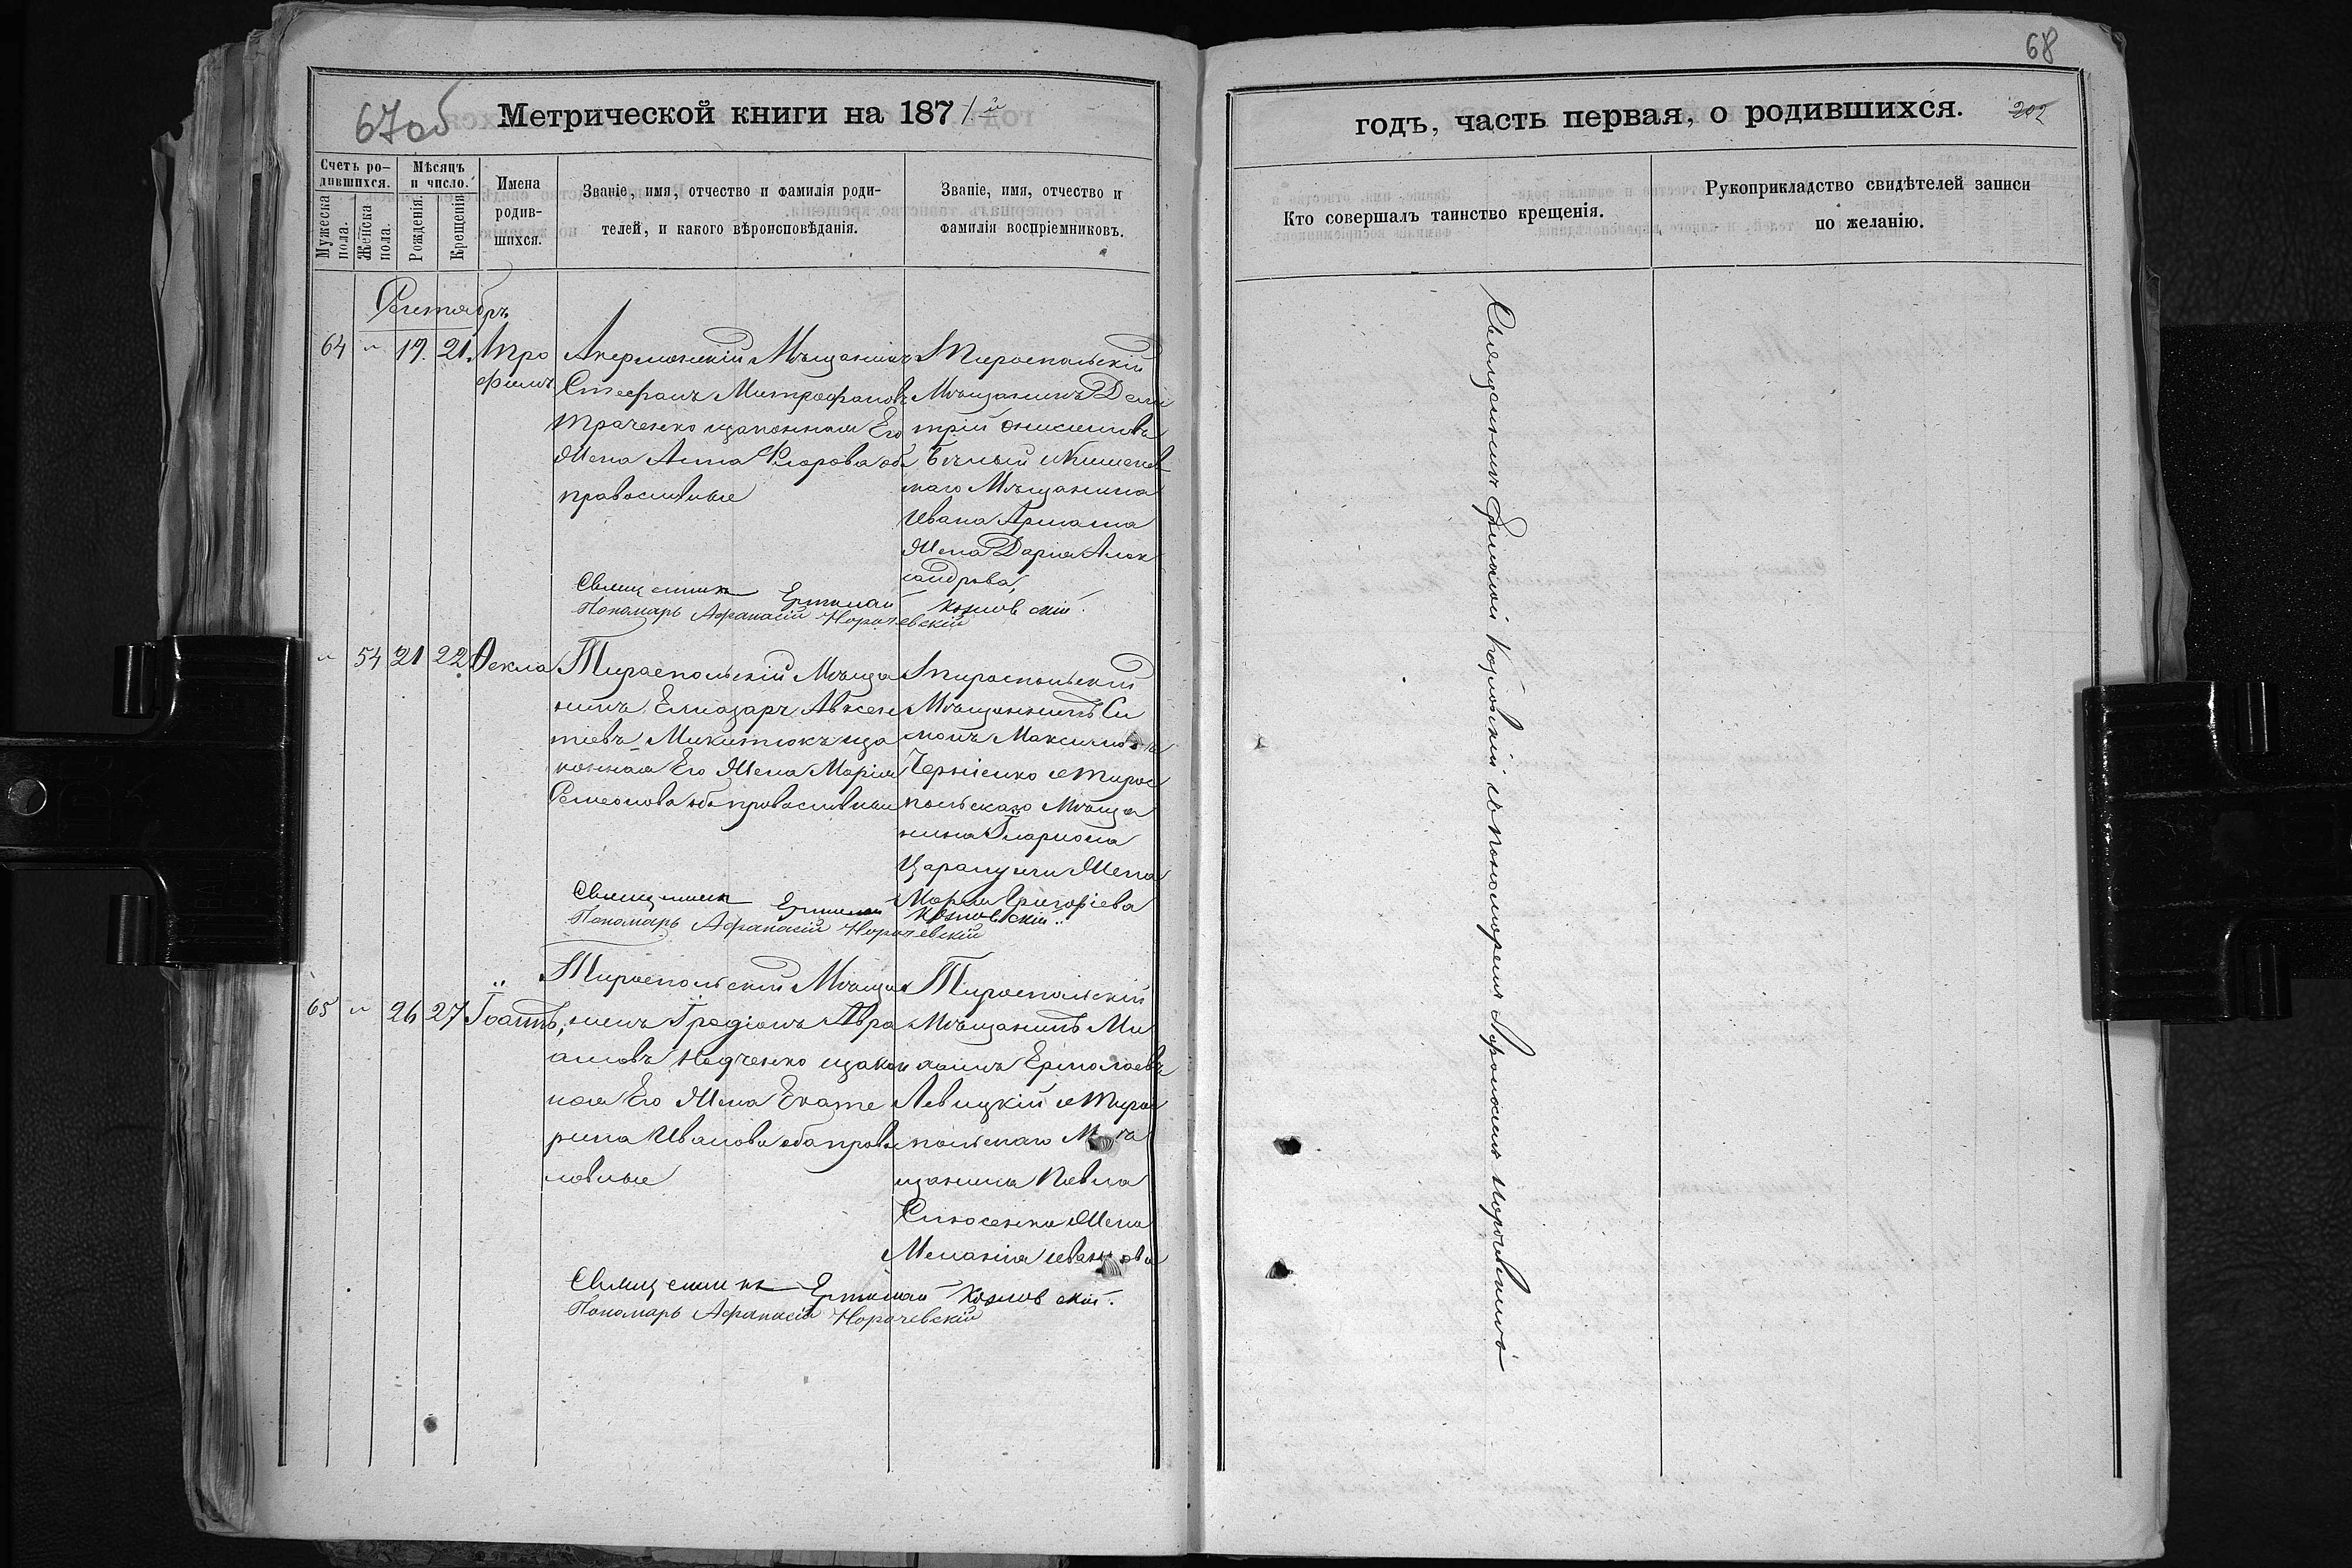 67об Метрической книги на 1871й
Счетъ ро-
дившихся.
Мѣсяцъ
и число.
Мужеска
пола.
Женска
пола.
Рожденія.
Крещенія.
Имена
родив-
шихся.
Званіе, имя, отчество и фамилія роди-
телей, и какого вѣроисповѣданія.
Званіе, имя, отчество и
фамилія воспріемниковъ.
Сентябрь
64 " 19. 21. Тро
фимъ
Акерманскій Мѣщанинъ
Стефанъ Митрофановъ
Траченко изаконная Его
Жена Анна Флорова оба
православные
Тираспольскій
Мѣщанинъ Дми
трій Онисимовъ
Бѣлый и Кишенев
скаго Мѣщанина
Ивана
Жена Дарія Алек
сандрова,
Священникъ Ермолай Козловскій.
Пономарь Афанасій Норочевскій
" 54 21 22 Ѳекла
Тираспольскій Мѣща
нинъ Елиазаръ Авксен
тіевъ Микитюкъ иза
конная Его Жена Марія
Семеонова оба православные
Тираспольскій
Мѣщанинъ Си
монъ Максимовъ
Черніенко и Тирас
польскаго Мѣща
нина Іларіона
Жена
Марія Григоріева
Священникъ Ермолай Козловскій.
Пономарь Афанасій Норочевскій
65 " 26 27 Іоаннъ,
Тираспольскій Мѣща
нинъ Іродіонъ Авра
амовъ Недченко изакон
ная Его Жена Екате
рина Иванова оба правос
ловные
Тираспольскій
Мѣщанинъ Ми
хаилъ Ермолаевъ
Левицкій и Тирас
польскаго Мѣ
щанина Павла
Жена
Меланія Иванова
Священникъ Ермолай Козловскій.
Пономарь Афанасій Норочевскій
68
годъ, часть первая, о родившихся. 202
Кто совершалъ таинство крещенія.
Рукоприкладство свидѣтелей записи
по желанію.
Священникъ Ермолай Козловскій съ пономаремъ Афанасіемъ Норочевскимъ